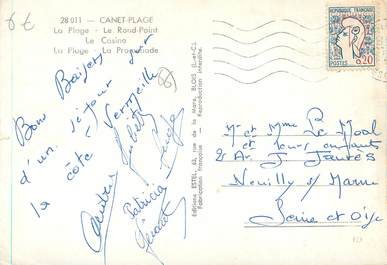 6€
28 011 — CANET-PLAGE
La Plage - Le Rond-Point
Le Casino
La Pluge - La Promenade
Bons Baisers
d'un séjour sur
la côte Vermeille
Patricia
Editions ESTEL, 63, rue de la Mare, BLOIS (L.-et-C.)
Fabrication française — Reproduction interdite.
REPUBLIQUE FRANÇAISE
0,20
POSTES
Mr et Mme Le Moal
et leurs enfants
21 Av. J Jaurès
Neuilly s/ Marne
Seine et Oise